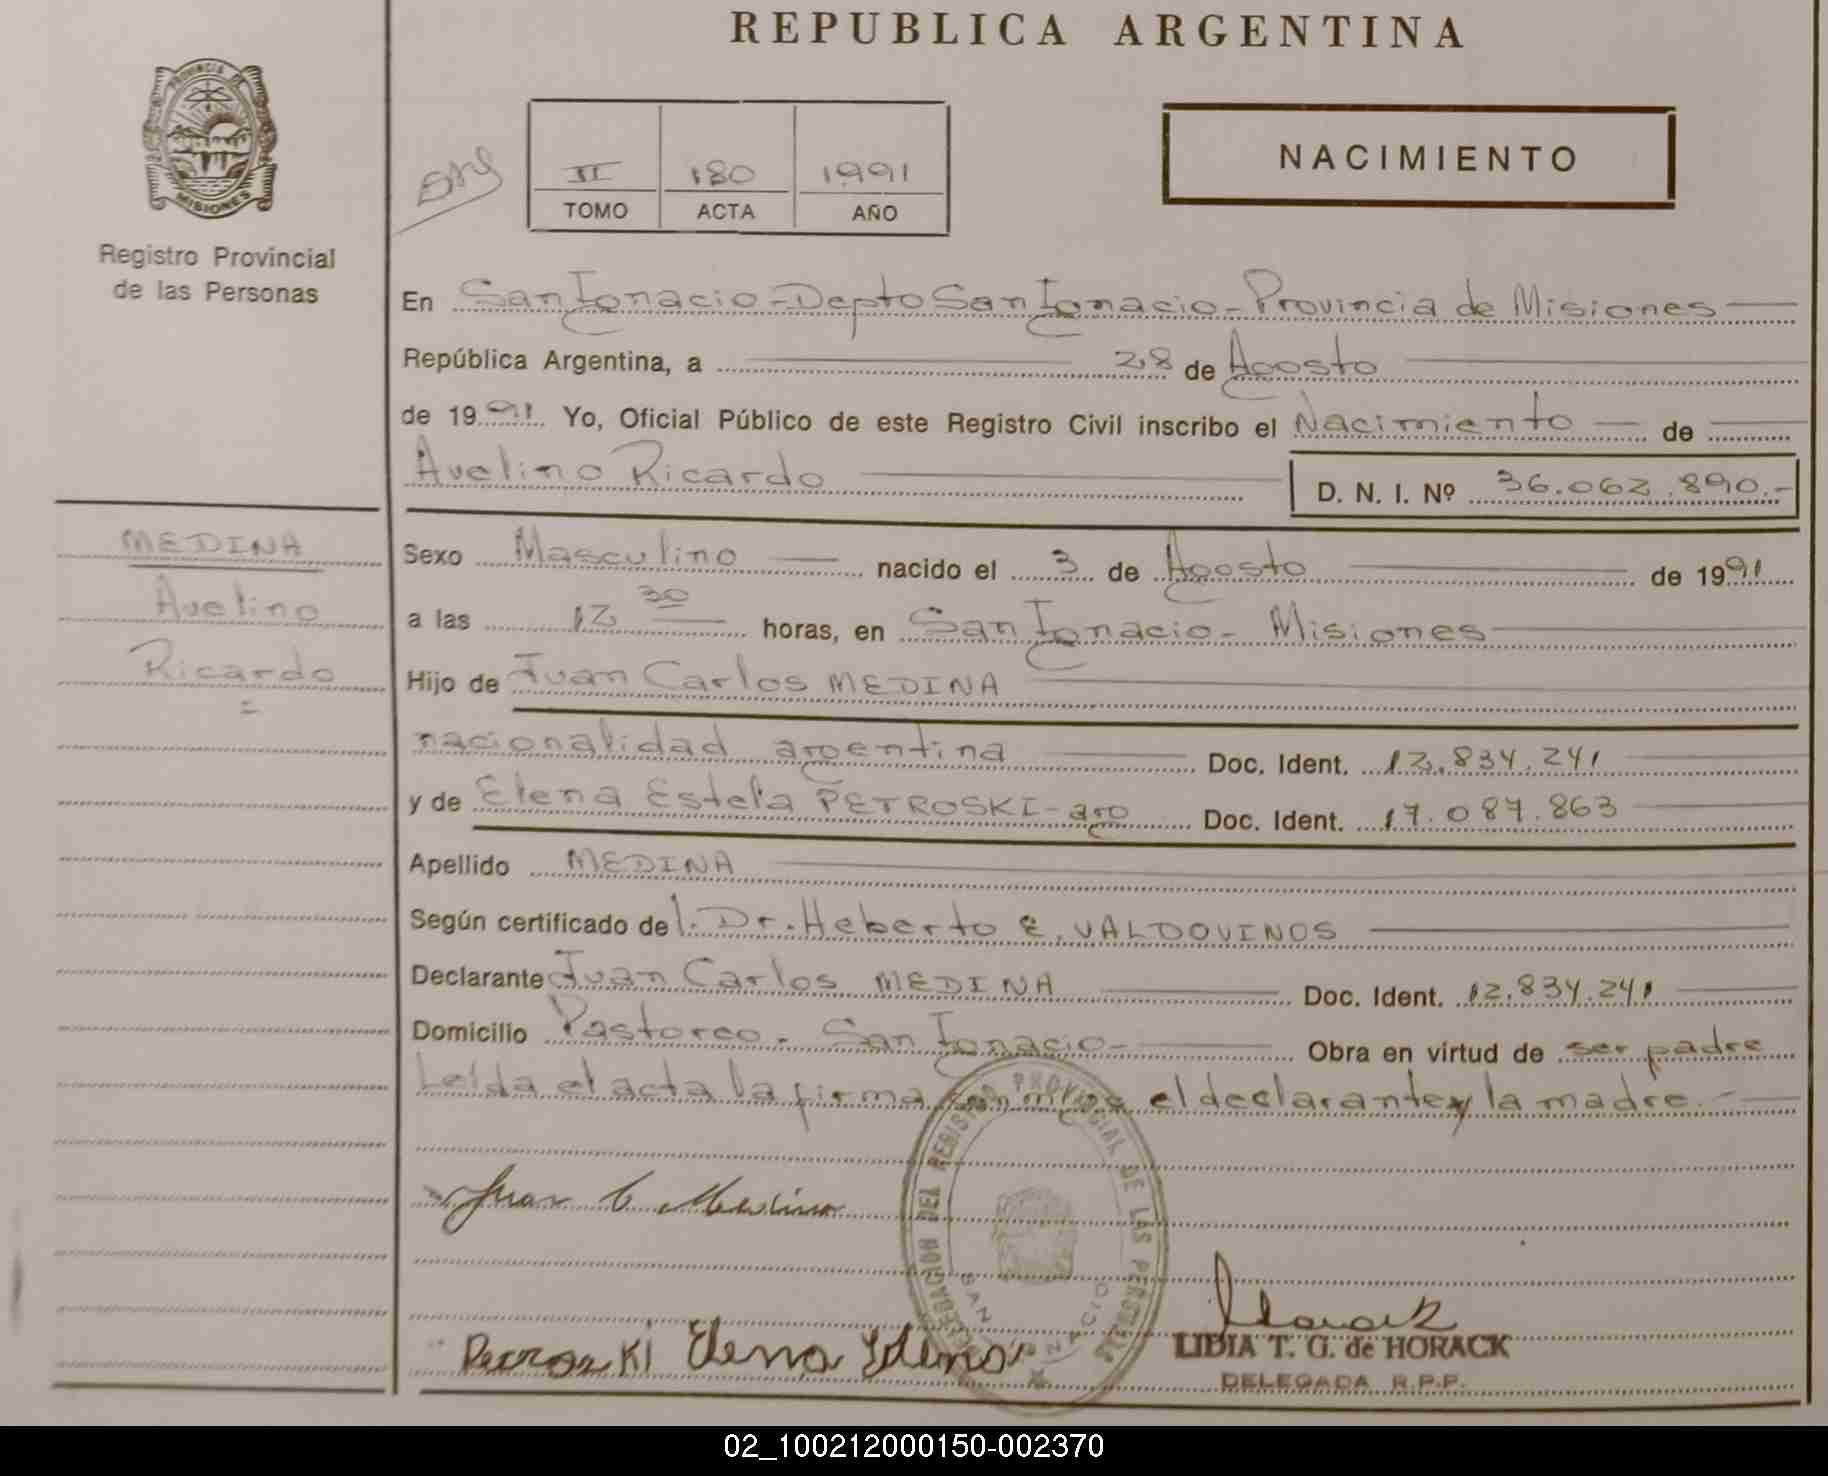 REPUBLICA ARGENTINA
PROVINCIA DE
MISIONES
Registro Provincial
de las Personas
II 180 1991
TOMO ACTA AÑO
NACIMIENTO
En San Ignacio - Depto San Ignacio - Provincia de Misiones
República Argentina, a 28 de Agosto
de 1991 Yo, Oficial Público de este Registro Civil inscribo el Nacimiento de
Avelino Ricardo
D. N. I. Nº 36.062.890.-
MEDINA
Avelino
Ricardo
Sexo Masculino nacido el 3 de Agosto de 1991
a las 12 30 horas, en San Ignacio - Misiones
Hijo de Juan Carlos MEDINA
nacionalidad argentina Doc. Ident. 12.834.241
y de Elena Estela PETROSKI - arg Doc. Ident. 17.087.863
Apellido MEDINA
Según certificado de l. Dr. Heberto E. VALDOVINOS
Declarante Juan Carlos MEDINA Doc. Ident. 12.834.241
Domicilio Pastoreo - San Ignacio - Obra en virtud de ser padre
Leída el acta la firma conmigo el declarante y la madre.-
DELEGACION DEL REGISTRO PROVINCIAL DE LAS PERSONAS
SAN IGNACIO
Juan C Medina
Elena
Horack
LIDIA T. G. de HORACK
DELEGADA R.P.P.
02_100212000150-002370